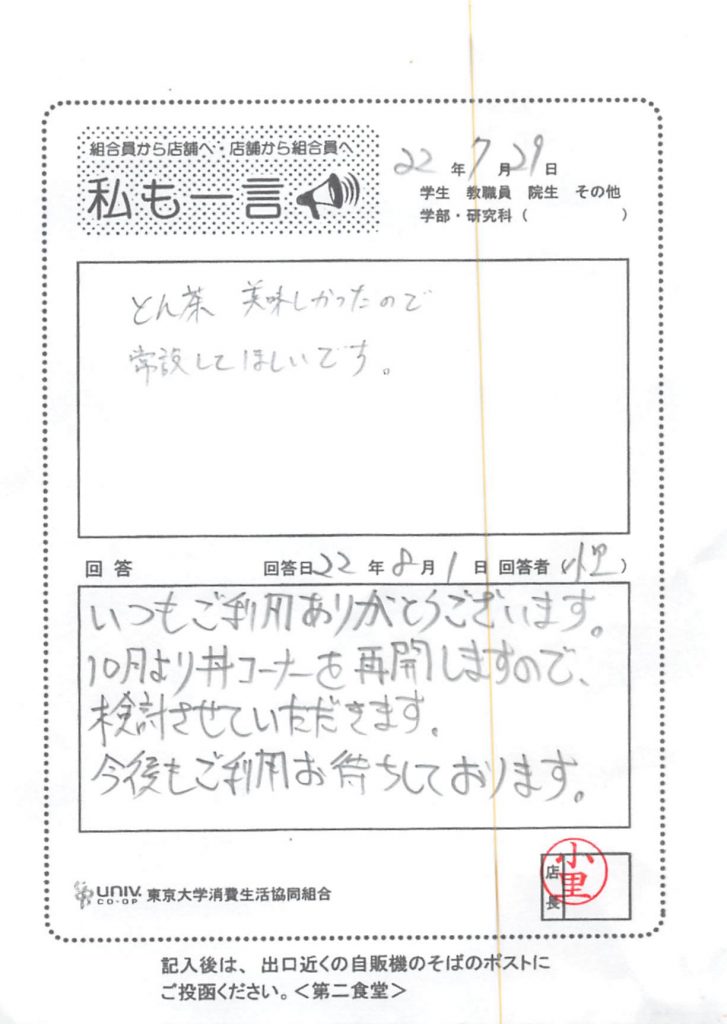 組合員から店舗へ・店舗から組合員へ
私も一言
22年7月29日
学生 教職員 院生 その他
学部・研究科（ ）
とん茶 美味しかったので
常設してほしいです。
回答 回答日22年8月1日 回答者（小里）
いつもご利用ありがとうございます。
10月より丼コーナーを再開しますので、
検討させていただきます。
今後もご利用お待ちしております。
店長
小里
UNIV. CO-OP 東京大学消費生活協同組合
記入後は、出口近くの自販機のそばのポストに
ご投函ください。＜第二食堂＞